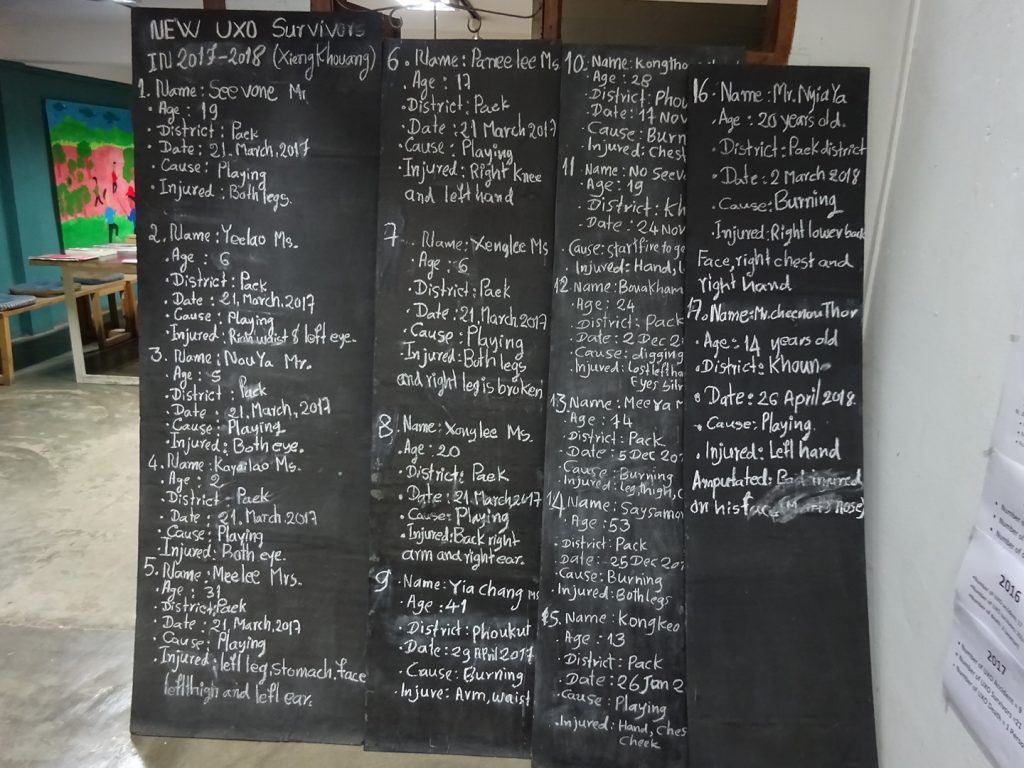 NEW UXO Survivors
IN 2017-2018 (XiengKhouang)
1. Name: See vone Mr.
• Age: 19
• District: Paek
• Date: 21. March, 2017
• Cause: Playing
• Injured: Both legs.
2. Name: Yeelao Ms.
• Age: 6
• District: Paek
• Date: 21, March, 2017
• Cause: Playing
• Injured: waist & left eye.
3. Name: Nou Ya Mr.
• Age: 5
• District: Paek
• Date: 21. March, 2017
• Cause: Playing
• Injured: Both eye.
4. Name: Kayailao Ms.
• Age: 2
• District: Paek
• Date: 21. March, 2017
Cause: Playing
Injured: Both eye.
5. Name: Meelee Mrs.
• Age: 31
• District: Paek
• Date: 21, March, 2017
• Cause: Playing
• Injured: left leg, stomach, face
left thigh and left ear.
6. Name: Panee lee Ms
Age: 17
• District: Paek
• Date: 21 March 2017
• Cause: Playing
• Injured: Right Knee
and left hand
7 Name: Xenglee Ms
• Age: 6
• District: Paek
• Date: 21. March. 2017
• Cause: Playing
Injured: Both legs
and right leg is broken
8. Name: Xonglee Ms.
• Age: 20
• District: Paek
• Date: 21. March, 2017
• Cause: Playing
• Injured: Back right
arm and right ear.
9 Name: Yia chang Ms
• Age: 41
• District: Phoukut
• Date: 29 April 2017
• Cause: Burning
• Injure: Arm, waist
10. Name:
Age: 28
District:
Date: 17 Nov
Cause: Burn
Injured: Chest
11. Name: No
Age: 19
District: Kh
Date: 24 Nov
Cause: start fire to
Injured: Hand,
12 Name: Bouakham
Age: 24
• District: Pack
• Date: 2 Dec 2
• Cause: digging
• Injured: Lost left
Eyes
13. Name: Meera
• Age: 14
• District: Pack
• Date: 5 Dec
• Cause: Burning
• Injured: leg, thigh,
14. Name: Saysamon
• Age: 53
• District: Pack
• Date: 25 Dec
Cause: Burning
• Injured: Both legs
15. Name: Kongkeo
• Age: 13
• District: Pack
• Date: 26 Jan 2
• Cause: Playing
• Injured: Hand, Ches
Cheek
16 • Name: Mr. Nyia Ya
• Age: 20 years old.
• District: Paek district
• Date: 2 March 2018
• Cause: Burning
• Injured: Right lower back
Face, right chest and
right hand
17. • Name: Mr. cheenou Thor
• Age: 14 years old
• District: Khoun
• Date: 26 April 2018
• Cause: Playing.
• Injured: Left hand
Amputated: injured
on his face nose)
2016
2017
• Number of UXO
• Number of UXO
• Number of UXO